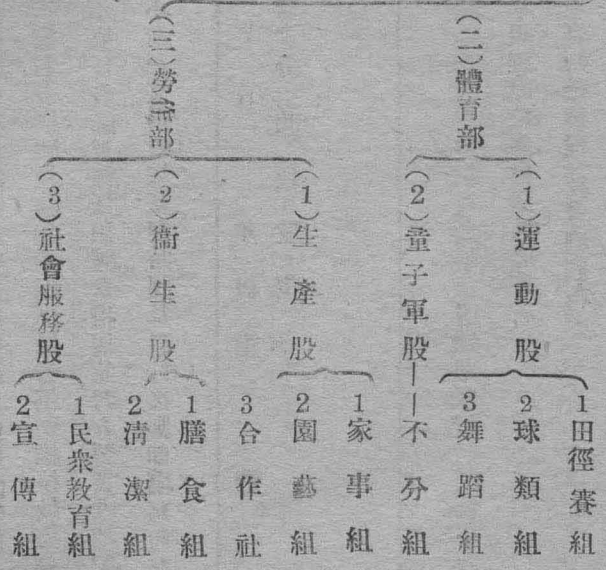 (二)體育部
(1)運動股
1田徑賽組
2球類組
3舞蹈組
(2)童子軍股——不分組
(三)勞作部
(1)生產股
1家事組
2園藝組
3合作社
(2)衞生股
1膳食組
2清潔組
(3)社會服務股
1民衆教育組
2宣傳組